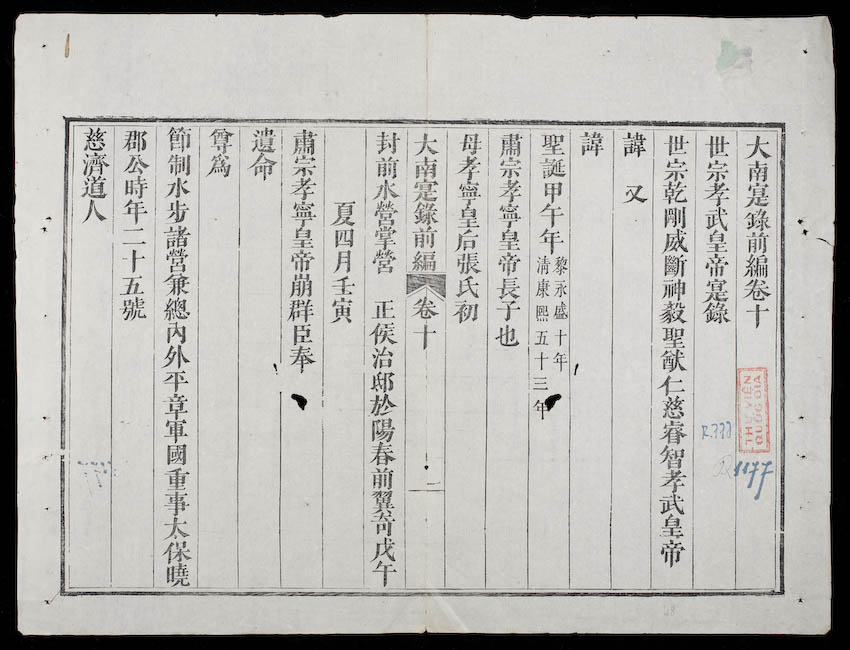 大南寔錄前編卷十
世宗孝武皇帝寔錄
世宗乾剛威斷神毅聖猷仁慈睿智孝武皇帝
諱 又
諱
聖誕甲午年 黎永盛十年
清康熙五十三年
肅宗孝寧皇帝長子也
母孝寧皇后張氏初
大南寔錄前編 卷十 一
封前水營掌營 正侯治邸於陽春前翼奇戊午
夏四月壬寅
肅宗孝寧皇帝崩群臣奉
遺命
尊為
節制水步諸營兼總內外平章軍國重事太保曉
郡公時年二十五號
慈濟道人
THƯ VIỆN
QUỐC GIA
R.777
1177